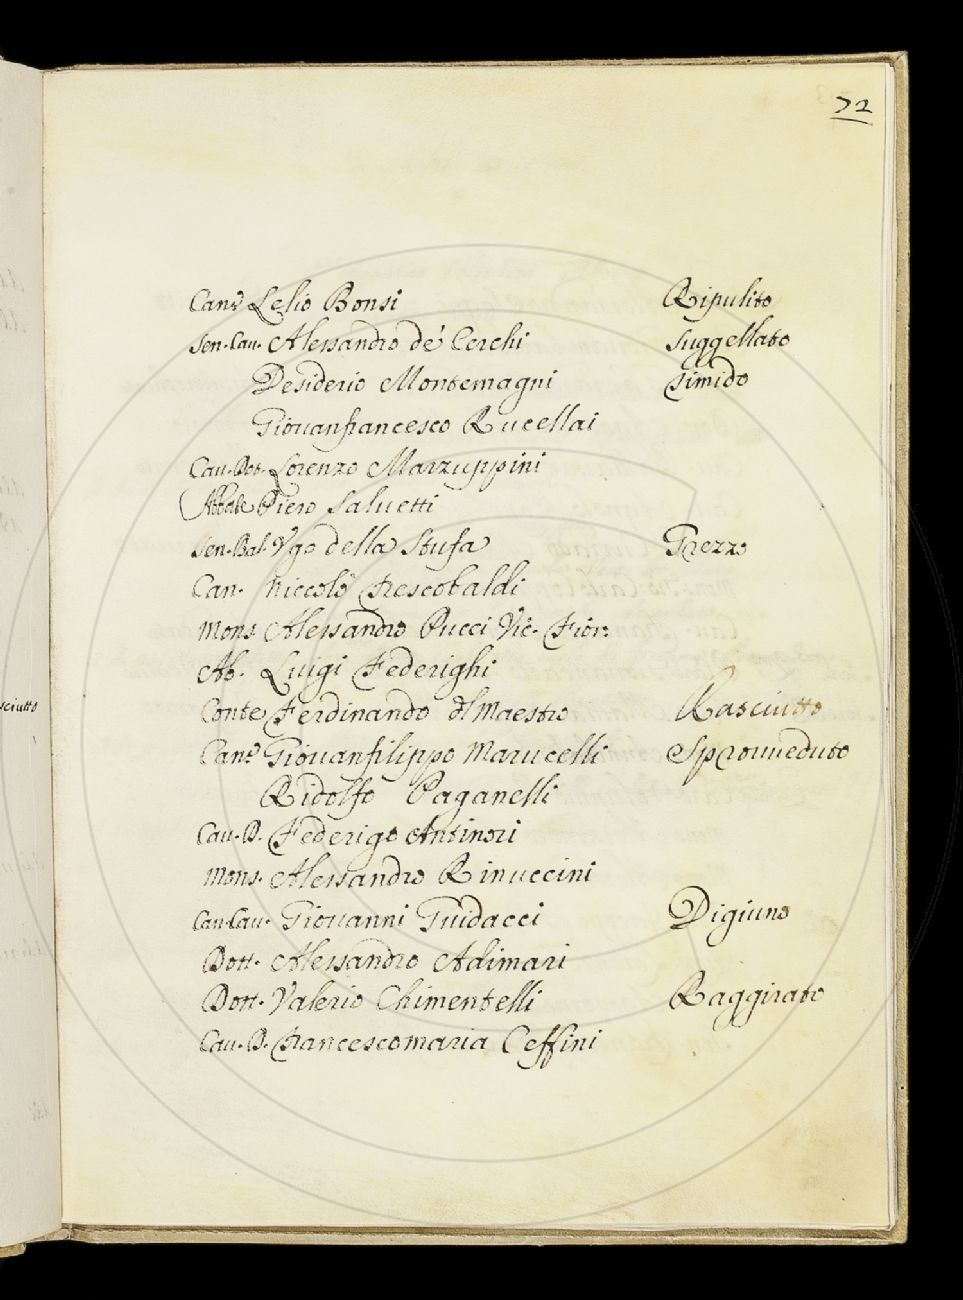 72
Can.co Lelio Bonsi Ripulito
Sen. Cau. Alessandro de' Cerchi Suggellato
Desiderio Montemagni Timido
Giouanfrancesco Rucellai
Cau. Dot. Lorenzo Marzuppini
Abbate Piero Saluetti
Sen. Bal. Vgo della Stufa Grezzo
Can. Niccolò Frescobaldi
Mons. Alessandro Pucci Vic. Fior:
Ab. Luigi Federighi
Conte Ferdinando del Maestro Rasciutto
Can.co Giouanfilippo Marucelli Sprouueduto
Ridolfo Paganelli
Cau. D. Federigo Antinori
Mons. Alessandro Rinuccini
Can. Cau. Giouanni Guidacci Digiuno
Dott. Alessandro Adimari
Dott. Valerio Chimentelli Raggirato
Cau. D. Francescomaria Ceffini